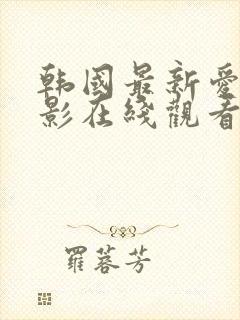 韩国最新爱
影在线觀看
羅蓉芳